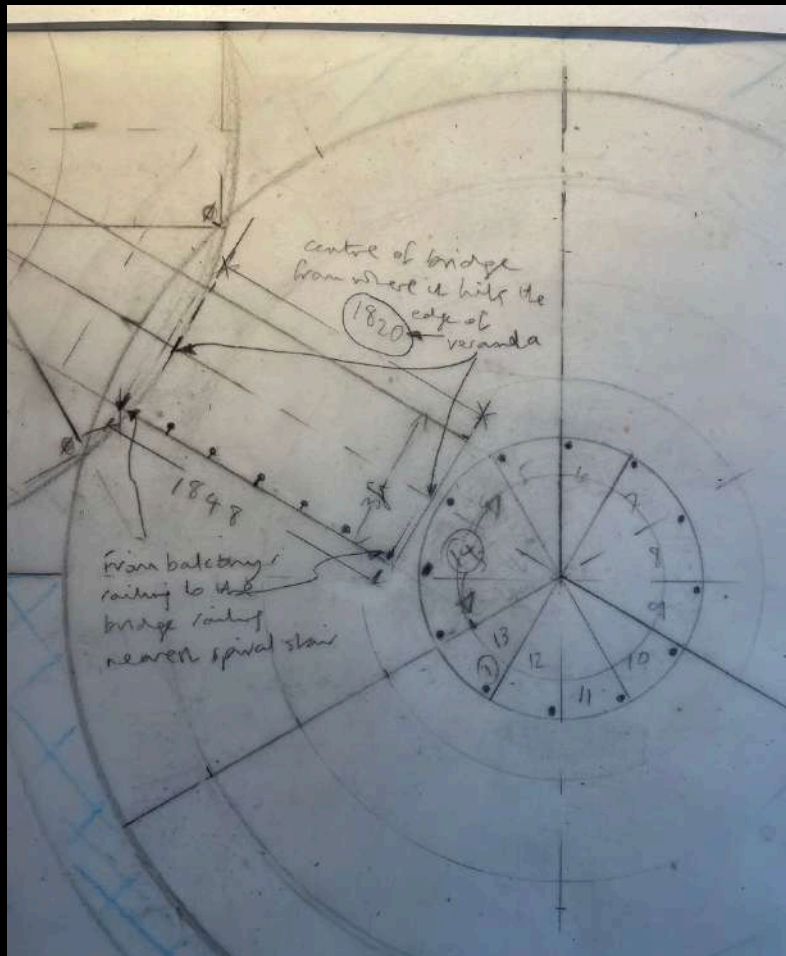 centre of bridge
from where it hits the
edge of
1820
veranda
1848
From balcony
railing to the
bridge railing
nearest spiral stair
5
6
7
8
9
10
11
12
13
14